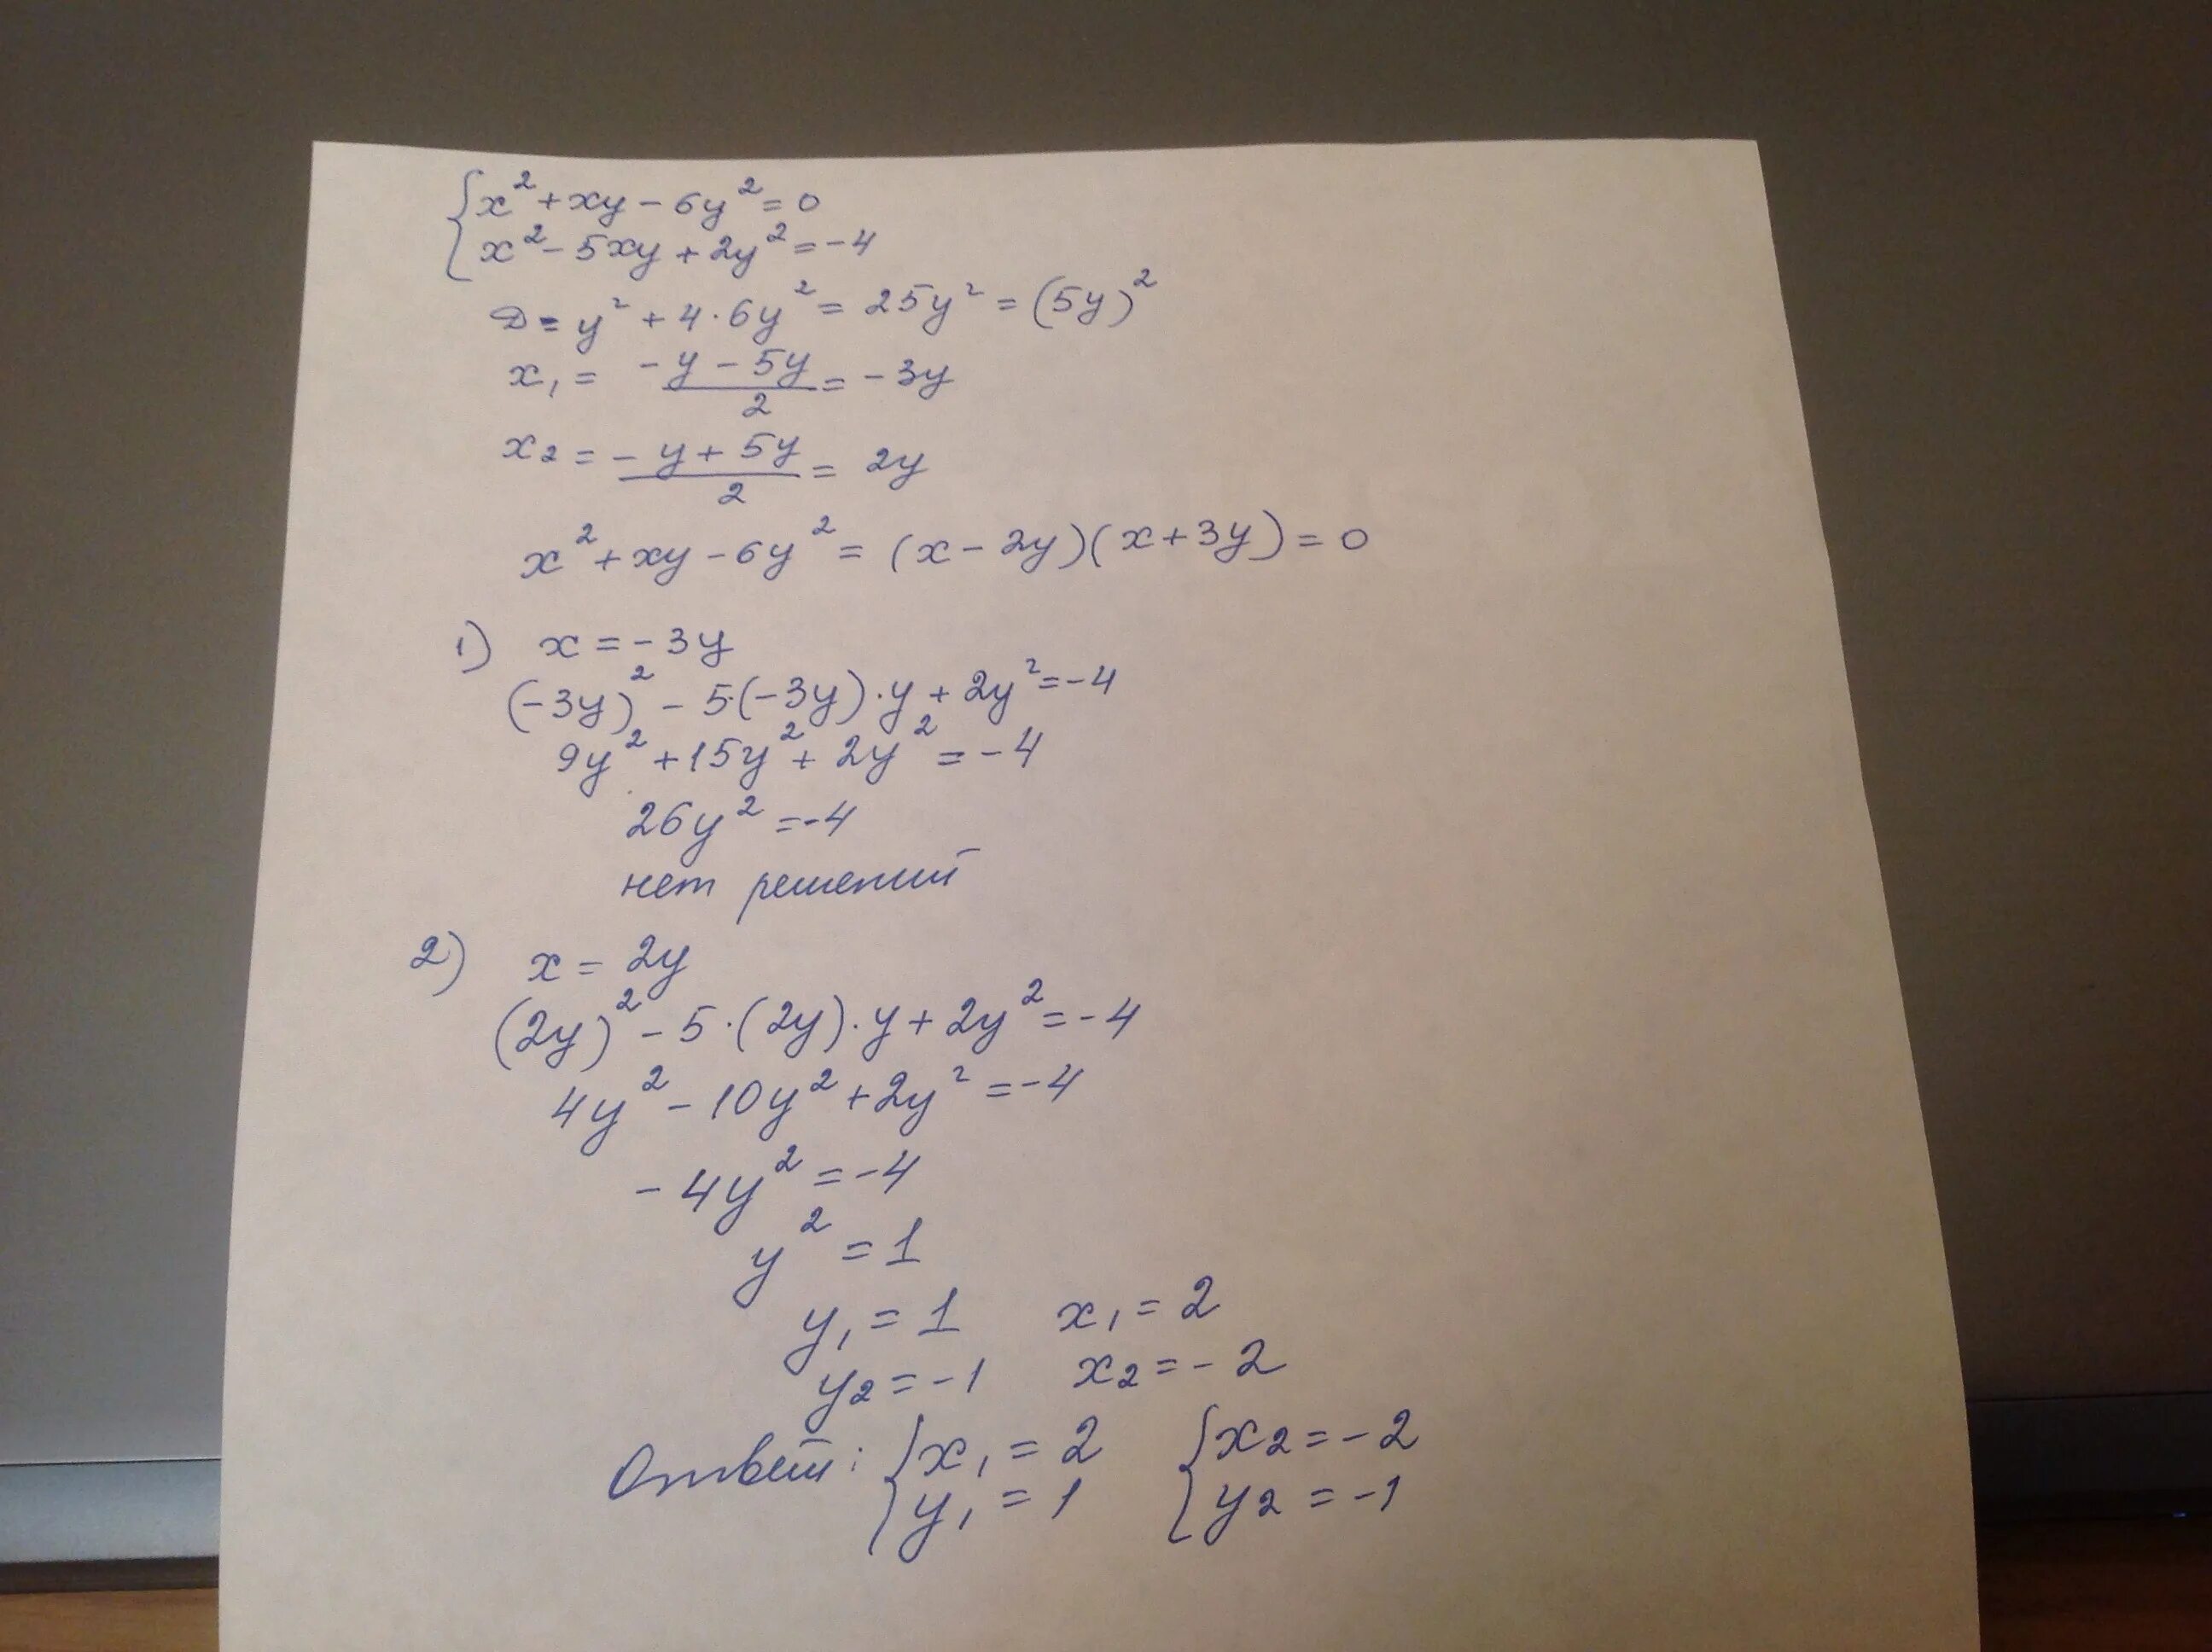 {x² + xy - 6y² = 0
x² - 5xy + 2y² = -4
D = y² + 4·6y² = 25y² = (5y)²
x₁ = (-y - 5y)/2 = -3y
x₂ = (-y + 5y)/2 = 2y
x² + xy - 6y² = (x - 2y)(x + 3y) = 0
1) x = -3y
(-3y)² - 5·(-3y)·y + 2y² = -4
9y² + 15y² + 2y² = -4
26y² = -4
нет решений
2) x = 2y
(2y)² - 5·(2y)·y + 2y² = -4
4y² - 10y² + 2y² = -4
-4y² = -4
y² = 1
y₁ = 1 x₁ = 2
y₂ = -1 x₂ = -2
Ответ: {x₁ = 2 {x₂ = -2
y₁ = 1 y₂ = -1